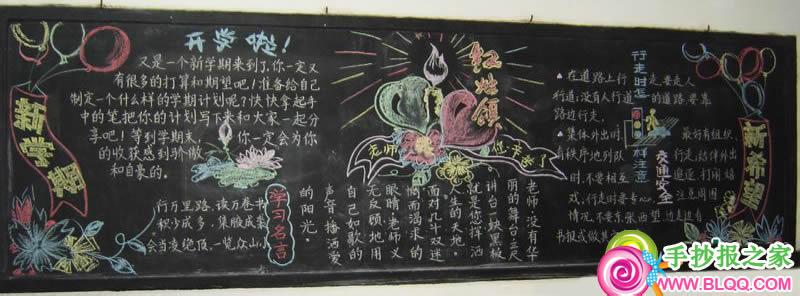 新学期
开学啦!
又是一个新学期来到了,你一定又
有很多的打算和期望吧!准备给自己
制定一个什么样的学期计划呢?快快拿起手
中的笔把你的计划写下来和大家一起分
享吧!等到学期末,你一定会为你
的收获感到骄傲
和自豪的。
行万里路,读万卷书
积少成多,集腋成裘
会当凌绝顶,一览众山小
学习名言
红烛颂
老师 您辛苦了
老师,没有华
丽的舞台,三尺
讲台一块黑板
就是你挥洒
人生的天地。
面对几十双迷
惘而渴求的
眼睛,老师义
无反顾地用
自己如歌的
声音播洒爱
的阳光。
行走时怎样注意交通安全
▲在道路上行走,要走人
行道;没有人行道的道路,要靠
路边行走。
▲集体外出时,最好有组织
有秩序地列队行走;结伴外出
时,不要相互追逐、打闹、嬉
戏;行走时要专心,注意周围
情况,不要东张西望、边走边看
书报或做其
新希望
手抄报之家
WWW.BLQQ.COM